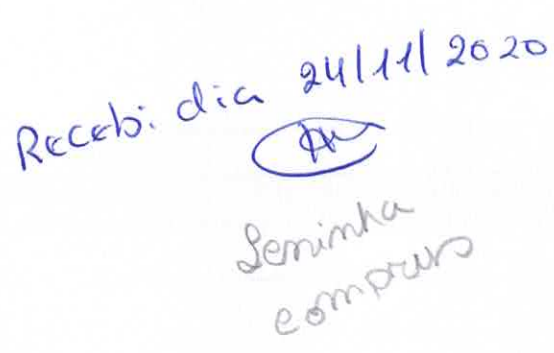 Recebi dia 24/11/2020
Leninha
compras